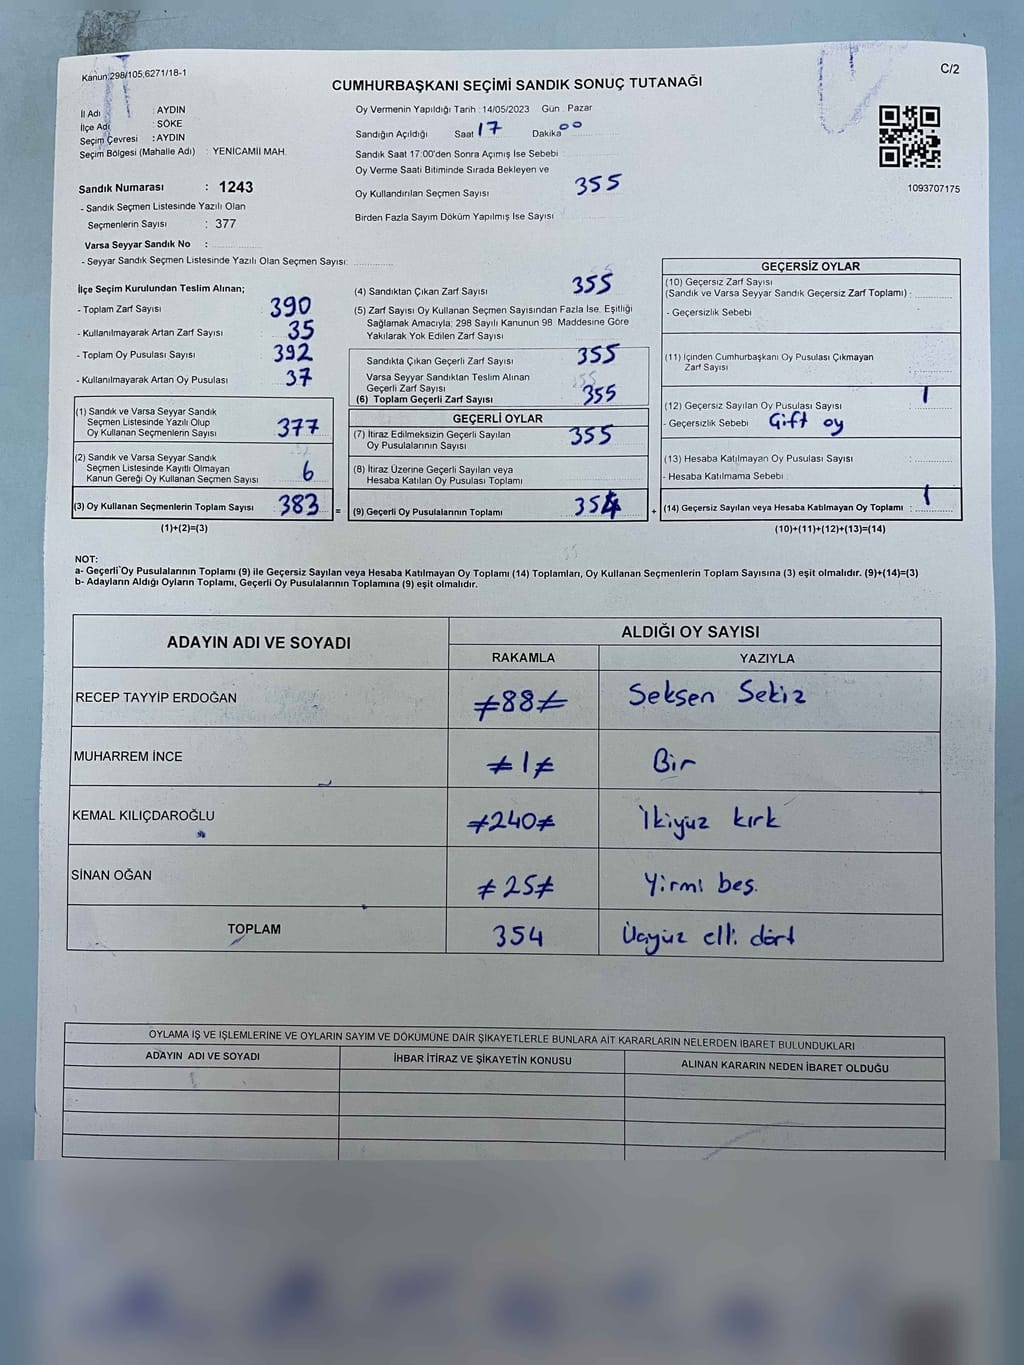 Kanun:298/105;6271/18-1
C/2
CUMHURBAŞKANI SEÇİMİ SANDIK SONUÇ TUTANAĞI
İl Adı : AYDIN
İlçe Adı : SÖKE
Seçim Çevresi : AYDIN
Seçim Bölgesi (Mahalle Adı) : YENICAMİİ MAH.
Sandık Numarası : 1243
- Sandık Seçmen Listesinde Yazılı Olan
Seçmenlerin Sayısı : 377
Varsa Seyyar Sandık No :
- Seyyar Sandık Seçmen Listesinde Yazılı Olan Seçmen Sayısı:
Oy Vermenin Yapıldığı Tarih : 14/05/2023 Gün : Pazar
Sandığın Açıldığı Saat 17 Dakika 00
Sandık Saat 17:00'den Sonra Açımış İse Sebebi
Oy Verme Saati Bitiminde Sırada Bekleyen ve
Oy Kullandırılan Seçmen Sayısı 355
Birden Fazla Sayım Döküm Yapılmış İse Sayısı
1093707175
İlçe Seçim Kurulundan Teslim Alınan;
- Toplam Zarf Sayısı 390
- Kullanılmayarak Artan Zarf Sayısı 35
- Toplam Oy Pusulası Sayısı 392
- Kullanılmayarak Artan Oy Pusulası 37
(1) Sandık ve Varsa Seyyar Sandık
Seçmen Listesinde Yazılı Olup
Oy Kullanan Seçmenlerin Sayısı 377
(2) Sandık ve Varsa Seyyar Sandık
Seçmen Listesinde Kayıtlı Olmayan
Kanun Gereği Oy Kullanan Seçmen Sayısı 6
(3) Oy Kullanan Seçmenlerin Toplam Sayısı 383 =
(1)+(2)=(3)
(4) Sandıktan Çıkan Zarf Sayısı 355
(5) Zarf Sayısı Oy Kullanan Seçmen Sayısından Fazla İse, Eşitliği
Sağlamak Amacıyla; 298 Sayılı Kanunun 98. Maddesine Göre
Yakılarak Yok Edilen Zarf Sayısı
Sandıkta Çıkan Geçerli Zarf Sayısı 355
Varsa Seyyar Sandıktan Teslim Alınan
Geçerli Zarf Sayısı
(6) Toplam Geçerli Zarf Sayısı 355
GEÇERLİ OYLAR
(7) İtiraz Edilmeksizin Geçerli Sayılan
Oy Pusulalarının Sayısı 355
(8) İtiraz Üzerine Geçerli Sayılan veya
Hesaba Katılan Oy Pusulası Toplamı
(9) Geçerli Oy Pusulalarının Toplamı 354 +
GEÇERSİZ OYLAR
(10) Geçersiz Zarf Sayısı
(Sandık ve Varsa Seyyar Sandık Geçersiz Zarf Toplamı) :
- Geçersizlik Sebebi
(11) İçinden Cumhurbaşkanı Oy Pusulası Çıkmayan
Zarf Sayısı :
(12) Geçersiz Sayılan Oy Pusulası Sayısı 1
- Geçersizlik Sebebi Gift oy
(13) Hesaba Katılmayan Oy Pusulası Sayısı :
- Hesaba Katılmama Sebebi
(14) Geçersiz Sayılan veya Hesaba Katılmayan Oy Toplamı : 1
(10)+(11)+(12)+(13)=(14)
NOT:
a- Geçerli Oy Pusulalarının Toplamı (9) ile Geçersiz Sayılan veya Hesaba Katılmayan Oy Toplamı (14) Toplamları, Oy Kullanan Seçmenlerin Toplam Sayısına (3) eşit olmalıdır. (9)+(14)=(3)
b- Adayların Aldığı Oyların Toplamı, Geçerli Oy Pusulalarının Toplamına (9) eşit olmalıdır.
ADAYIN ADI VE SOYADI ALDIĞI OY SAYISI
RAKAMLA YAZIYLA
RECEP TAYYİP ERDOĞAN ≠88≠ Seksen Sekiz
MUHARREM İNCE ≠1≠ Bir
KEMAL KILIÇDAROĞLU ≠240≠ İkiyüz kırk
SİNAN OĞAN ≠25≠ Yirmi beş.
TOPLAM 354 Üçyüz elli dört
OYLAMA İŞ VE İŞLEMLERİNE VE OYLARIN SAYIM VE DÖKÜMÜNE DAİR ŞİKAYETLERLE BUNLARA AİT KARARLARIN NELERDEN İBARET BULUNDUKLARI
ADAYIN ADI VE SOYADI İHBAR İTİRAZ VE ŞİKAYETİN KONUSU ALINAN KARARIN NEDEN İBARET OLDUĞU